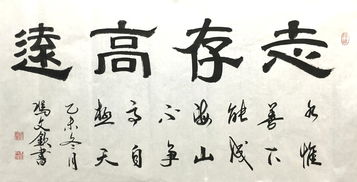 志存高遠
水惟
善下
能成
海山
不争
高自
極天
乙未冬月
文書